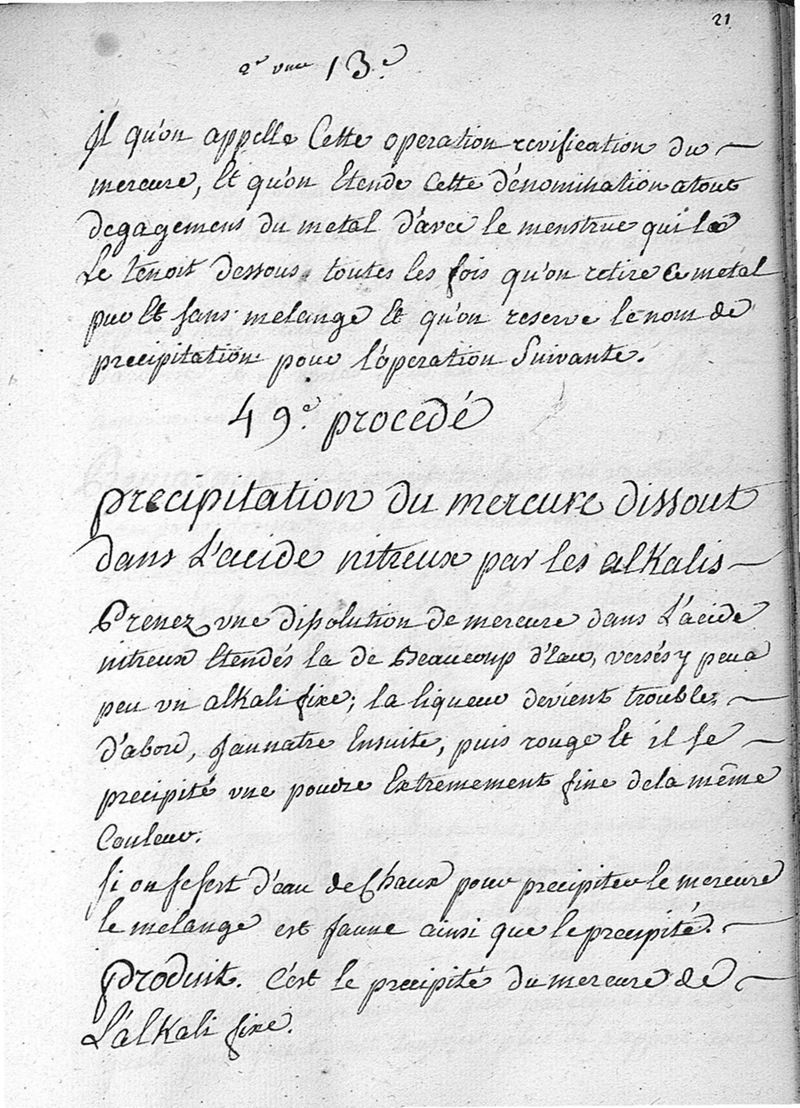 21
13.e
Il qu'on appelle Cette operation revification du
mercure, Et qu'on Etende cette dénomination a tout
degagement du metal d'avec le menstrue qui le
Le tenoit dessous toutes les fois qu'on retire ce metal
pur Et sans melange Et qu'on reserve le nom de
precipitation pour l'operation Suivante.
49.e procedé
precipitation du mercure dissout
dans L'acide nitreux par les alkalis
Prenez une dissolution de mercure dans L'acide
nitreux Etendés la de Beaucoup d'Eau, versés y peu a
peu un alkali fixe; la liqueur devient trouble,
d'abord, Jaunatre Ensuite, puis rouge Et il se
precipité une poudre Extremement fine de la même
Couleur.
Si on se sert d'eau de Chaux pour precipiter le mercure
le melange est Jaune ainsi que le precipité.
Produit. C'est le precipité du mercure de
L'alkali fixe.